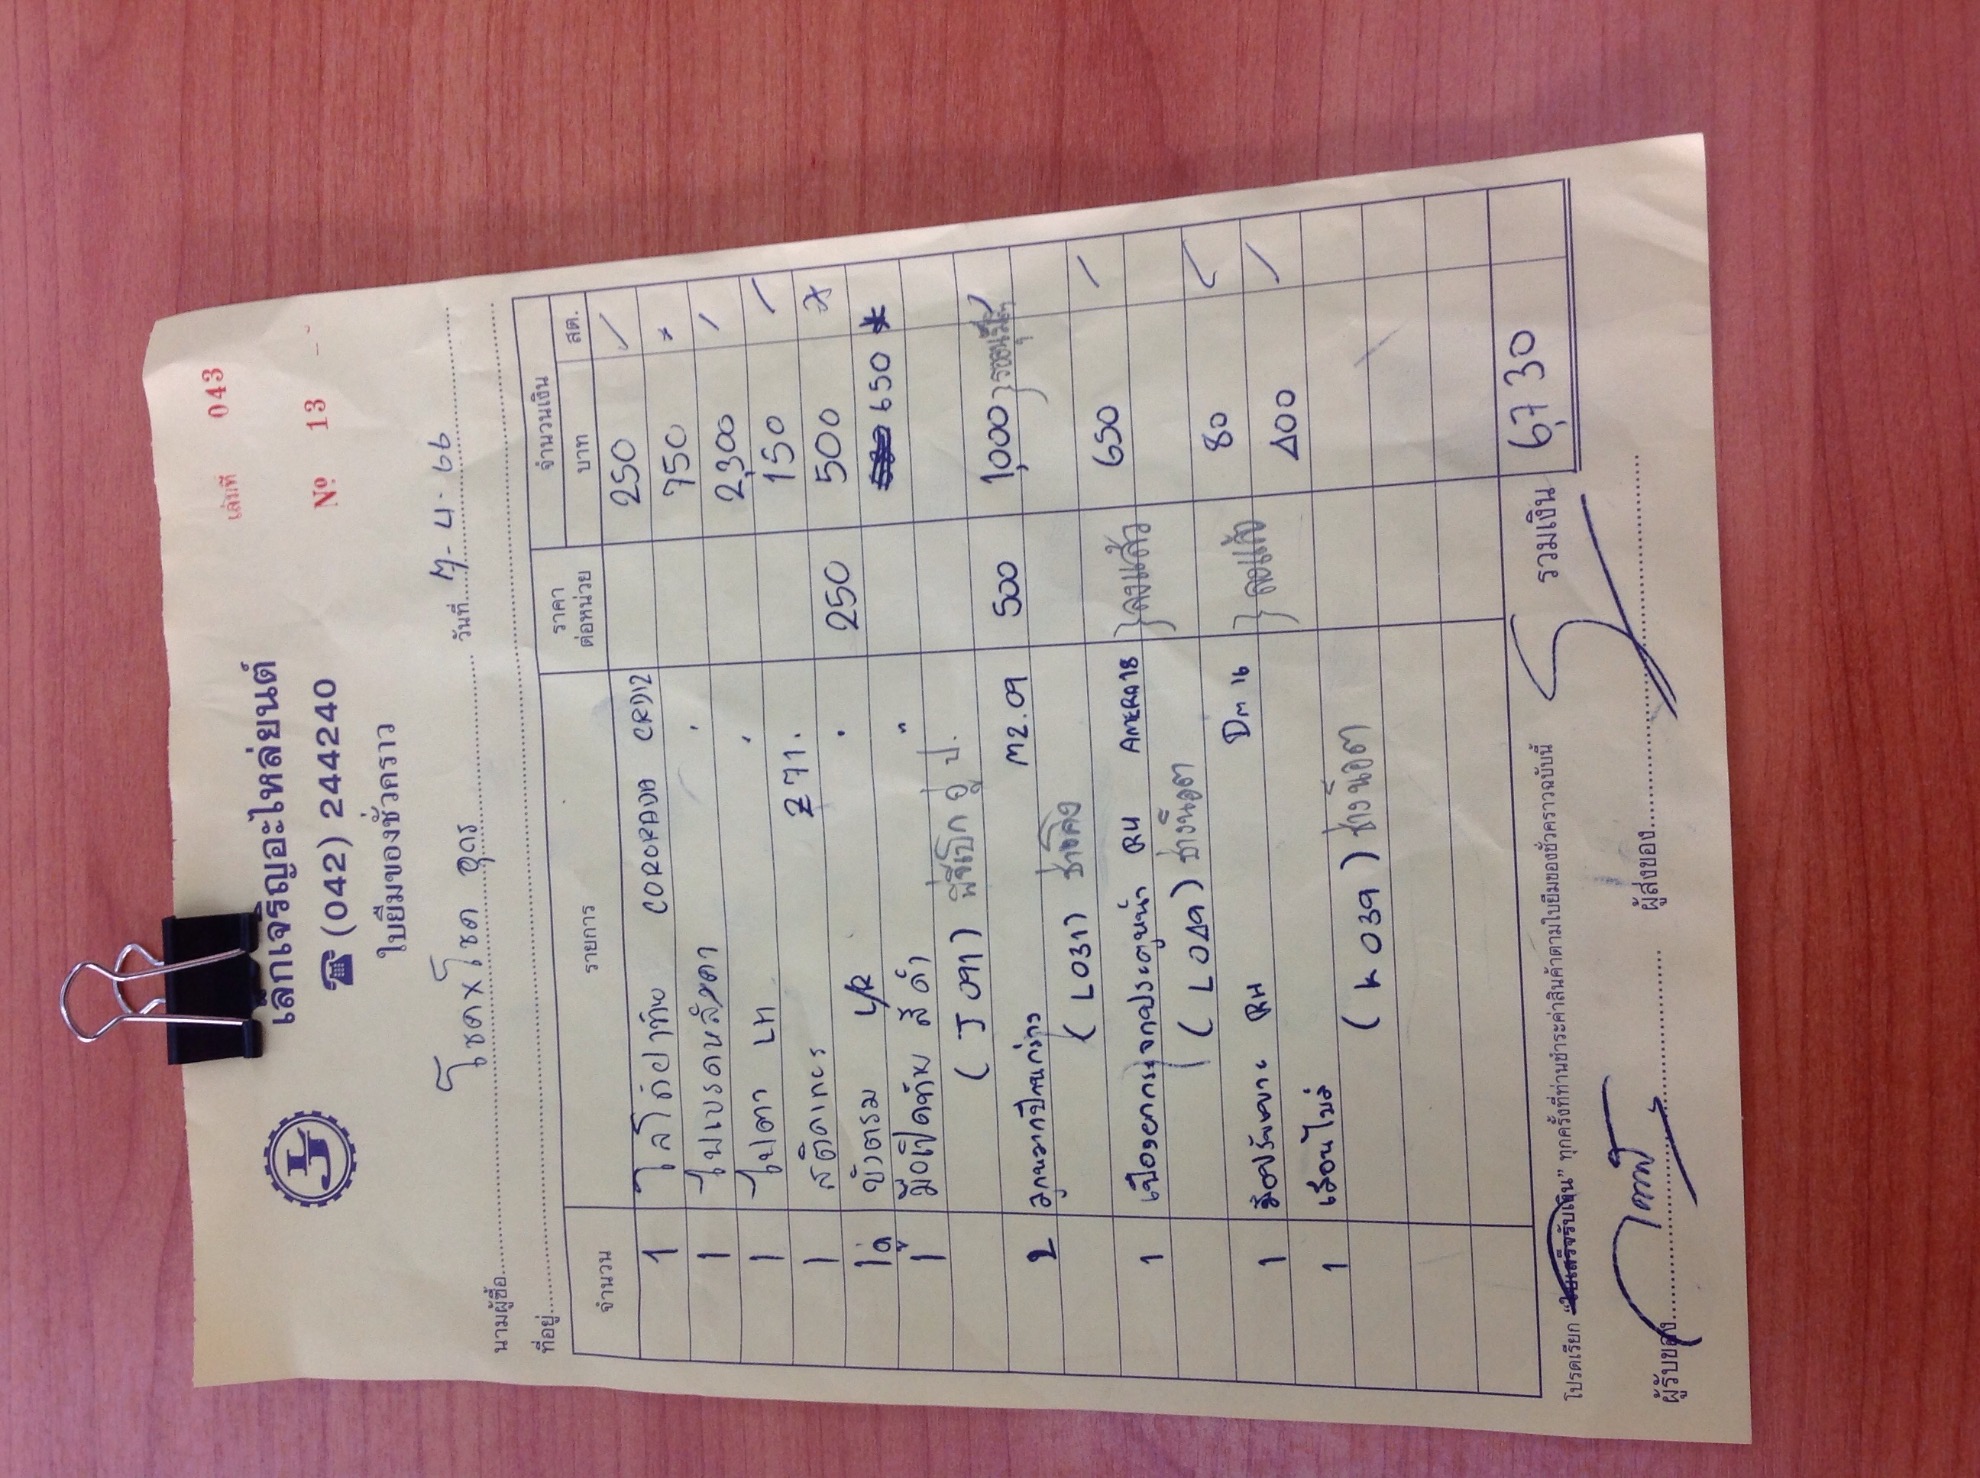 เล่มที่ 043
เล็กเจริญอะไหล่ยนต์
☎ (042) 244240
Nº 13
ใบยืมของชั่วคราว
นามผู้ซื้อ โชคxโชค อุดร วันที่ 7-4-66
ที่อยู่
จำนวน รายการ ราคาต่อหน่วย จำนวนเงิน
บาท สต.
1 โลโก้ฝาท้าย CORORADA CRD12 250
1 ไฟเบรคหลังคา " 750
1 ไฟตา LH " 2,300
1 สติคเกอร Z71. 150
1คู่ บังตรม L/R " 250 500
1 มือเปิดท้าย สีดำ " 650
(J 091)
2 ลูกหมากปีกนกล่าง M2.09 500 1,000
(L031) ช่างโค้ง
1 เฟืองยกกระจกประตูหน้า RH AMERA18 650
(L049) ช่างน๊อต } ลงแล้ว
1 RH Dm 16 80
1 เรือนไมล์ 400
(K 039) ช่างน๊อต } ลงแล้ว
รวมเงิน 6,730
โปรดเรียก "ใบเสร็จรับเงิน" ทุกครั้งที่ท่านชำระค่าสินค้าตามใบยืมของชั่วคราวฉบับนี้
ผู้รับของ ผู้ส่งของ